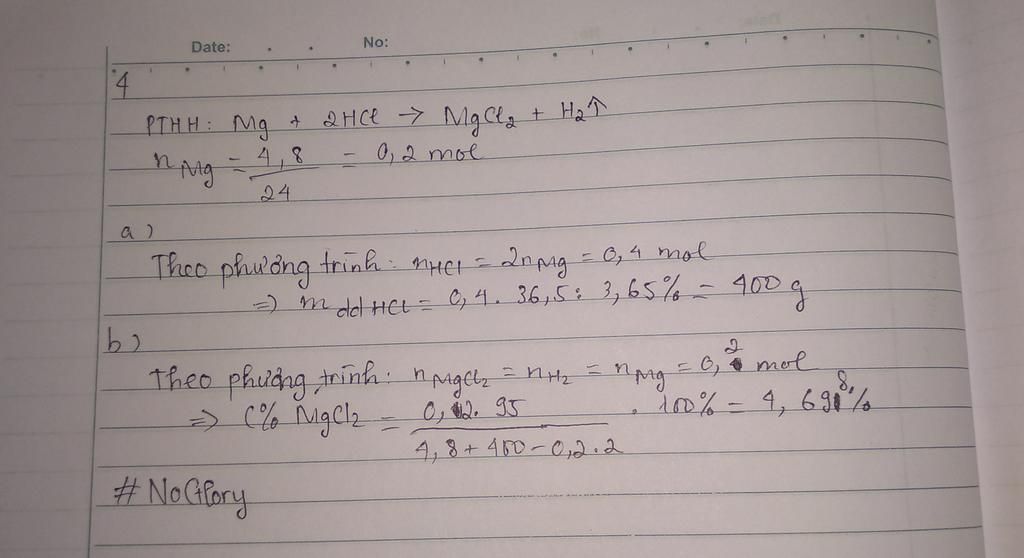 Date: No:
4
PTHH: Mg + 2HCl → MgCl₂ + H₂↑
n Mg = 4,8 / 24 = 0,2 mol
a)
Theo phương trình: nHCl = 2nMg = 0,4 mol
=> m dd HCl = 0,4. 36,5 : 3,65% = 400 g
b)
Theo phương trình: nMgCl₂ = nH₂ = nMg = 0,2 mol
=> C% MgCl₂ = 0,2. 95 / 4,8 + 400 - 0,2.2 . 100% = 4,698%
# NoGlory